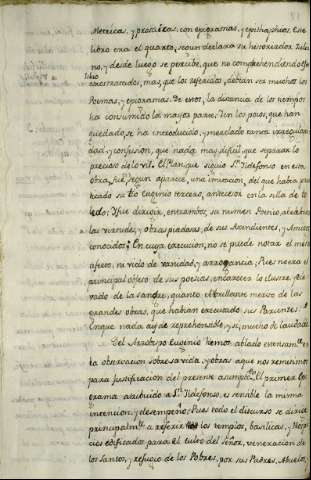 Metricas, y prosaicas, con epigramas, y epithaphios. Este
libro era el quarto, segun declara su historiador Julia
no, y desde luego se percibe, que no comprehendiendo este
libro
mas, que los referidos, debian ser muchos los
Poemas, y epigramas. De estos, la distancia de los tiempos
ha consumido la mayor parte. En los pocos, que han
quedado, se ha introducido, y mezclado tanta irregulari
dad, y confusion, que nada mas dificil que separar lo
precioso de lo vil. El Plan que siguio Sn. Ildefonso en esta
obra, fue, segun aparece, una imitacion, del que habia prac
ticado su tio Eugenio tercero, antecesor en la silla de To
ledo; Y fue dirigir, entrambos, su numen
las virtudes, y obras piadosas, de sus Ascendientes, y Amigos
conocidos; En cuya execucion, no se puede notar el menor
afecto, ni vicio de vanidad, y arrogancia; Pues no era el
principal objeto de sus poesias, encarecer lo ilustre, deri
vado de la sangre, quanto el brillante merito de las
grandes obras, que habian executado sus Parientes: En
que nada ay de reprehensible, y si, mucho de laudable.
Del Arzobispo Eugenio hemos ablado extensamte. en
la observacion sobre su vida, y obras a que nos remitimos
para justificacion del presente asumpto. El primer Epi
grama atribuido a Sn. Ildefonso, es sensible la misma
intencion, y desempeño; Pues todo el discurso se dirige
principalmte. a referir los templos, basilicas, y
edificados para el culto del Señor, veneracion de
los Santos, y refugio de los Pobres, por sus Padres, Abuelos,